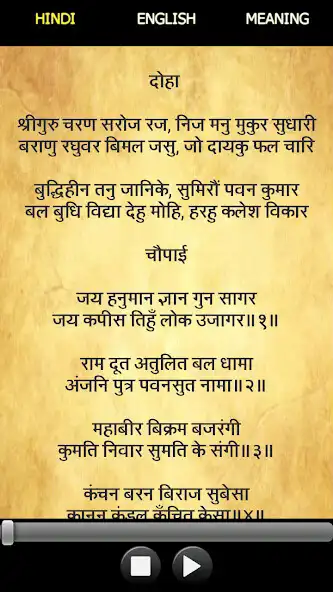 HINDI ENGLISH MEANING
दोहा
श्रीगुरु चरण सरोज रज, निज मनु मुकुर सुधारी
बराणु रघुवर बिमल जसु, जो दायकु फल चारि
बुद्धिहीन तनु जानिके, सुमिरौं पवन कुमार
बल बुधि विद्या देहु मोहि, हरहु कलेश विकार
चौपाई
जय हनुमान ज्ञान गुन सागर
जय कपीस तिहुँ लोक उजागर॥१॥
राम दूत अतुलित बल धामा
अंजनि पुत्र पवनसुत नामा॥२॥
महाबीर बिक्रम बजरंगी
कुमति निवार सुमति के संगी॥३॥
कंचन बरन बिराज सुबेसा
कानन कुंडल कुँचित केसा॥४॥